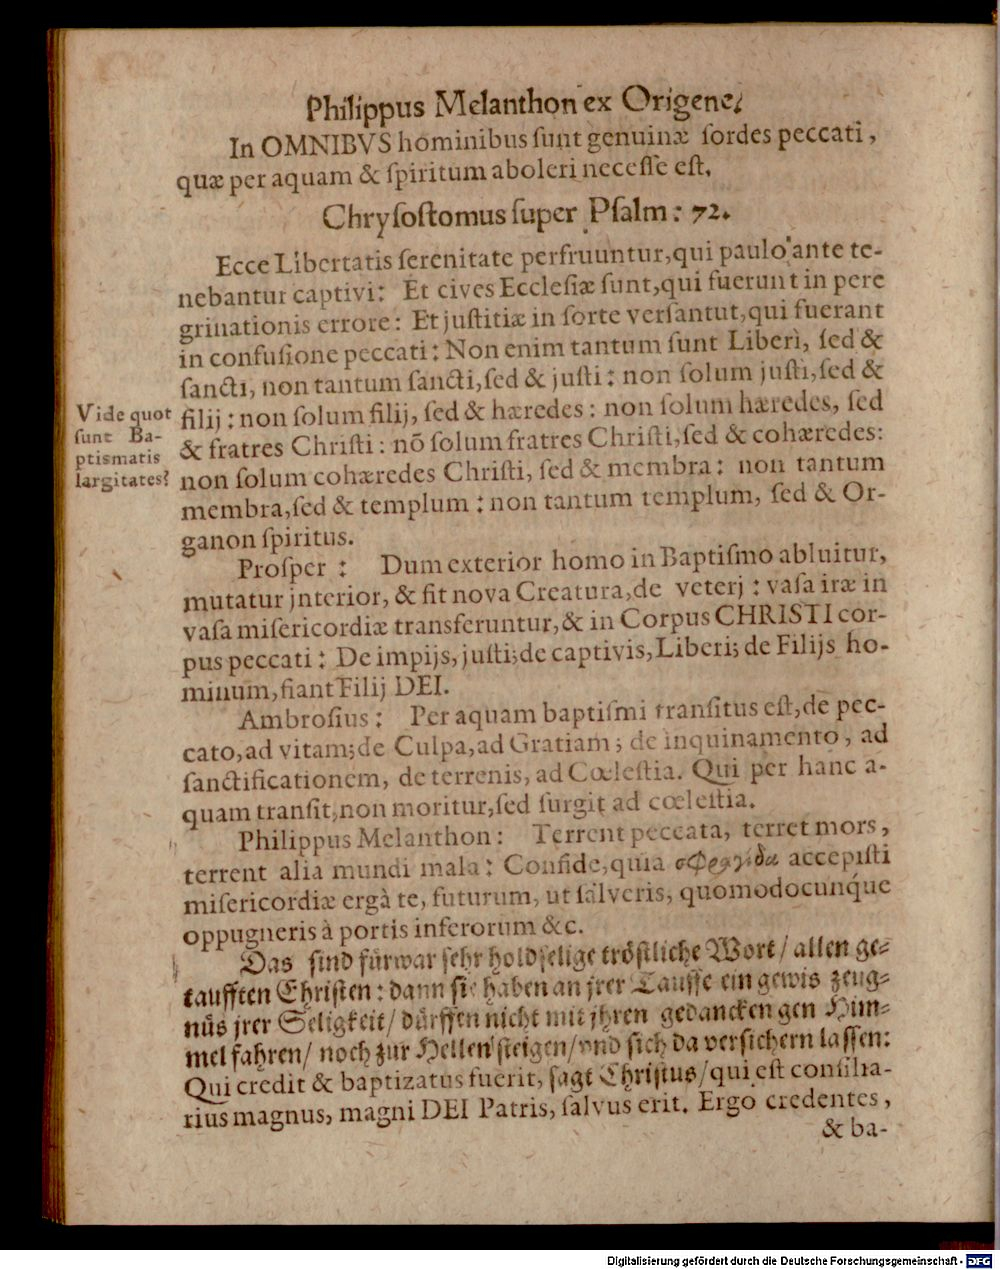 Philippus Melanthon ex Origene:
In OMNIBVS hominibus ſunt genuinæ ſordes peccati,
quæ per aquam & ſpiritum aboleri neceſſe eſt.
Chryſoſtomus ſuper Pſalm: 72.
Ecce Libertatis ſerenitate perfruuntur, qui paulo ante te-
nebantur captivi: Et cives Eccleſiæ ſunt, qui fuerunt in pere
grinationis errore: Et juſtitiæ in ſorte verſantut, qui fuerant
in confuſione peccati: Non enim tantum ſunt Liberi, ſed &
ſancti, non tantum ſancti, ſed & juſti: non ſolum juſti, ſed &
filij: non ſolum filij, ſed & hæredes: non ſolum hæredes, ſed
& fratres Chriſti: nõ ſolum fratres Chriſti, ſed & cohæredes:
non ſolum cohæredes Chriſti, ſed & membra: non tantum
membra, ſed & templum: non tantum templum, ſed & Or-
ganon ſpiritus.
Vide quot
ſunt Ba-
ptismatis
largitates?
Proſper: Dum exterior homo in Baptiſmo abluitur,
mutatur jnterior, & fit nova Creatura, de veterj: vaſa iræ in
vaſa miſericordiæ transferuntur, & in Corpus CHRISTI cor-
pus peccati: De impijs, juſti; de captivis, Liberi; de Filijs ho-
minum, fiant Filij DEI.
Ambroſius: Per aquam baptiſmi tranſitus eſt, de pec-
cato, ad vitam; de Culpa, ad Gratiam; de inquinamento, ad
ſanctificationem, de terrenis, ad Cœleſtia. Qui per hanc a-
quam tranſit, non moritur, ſed ſurgit ad cœleſtia.
Philippus Melanthon: Terrent peccata, terret mors,
terrent alia mundi mala: Confide, quia σφραγίδα accepiſti
miſericordiæ ergà te, futurum, ut ſalveris, quomodocunque
oppugneris à portis inferorum &c.
Das ſind fürwar ſehr holdſelige tröſtliche Wort/ allen ge-
taufften Chriſten: dann ſie haben an jrer Tauffe ein gewis zeug-
nüs jrer Seligkeit/ dürffen nicht mit jhren gedancken gen Him-
mel fahren/ noch zur Hellen ſteigen/ vnd ſich da verſichern laſſen:
Qui credit & baptizatus fuerit, ſagt Chriſtus/ qui eſt conſilia-
rius magnus, magni DEI Patris, ſalvus erit. Ergo credentes,
& ba-
Digitalisierung gefördert durch die Deutsche Forschungsgemeinschaft - DFG